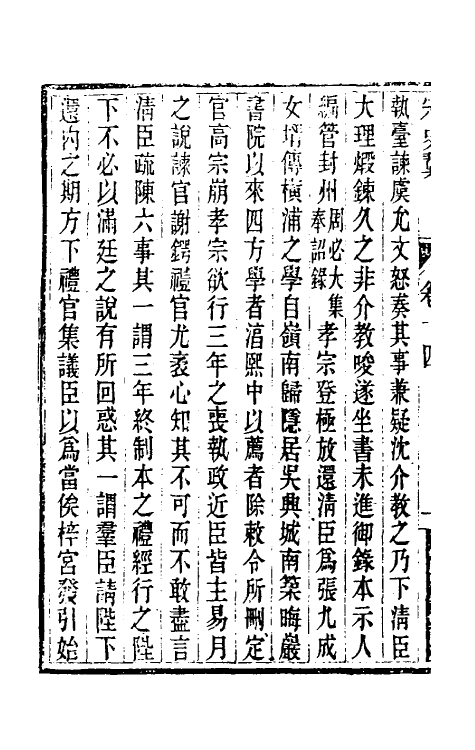 宋史翼 卷十四 一
執臺諫虞允文怒奏其事兼疑沈介教之乃下清臣
大理煅鍊久之非介教唆遂坐書未進御錄本示人
編管封州周必大集奉詔錄孝宗登極放還清臣為張九成
女壻傳橫浦之學自嶺南歸隱居吳興城南築晦巖
書院以來四方學者湻熙中以薦者除敕令所刪定
官高宗崩孝宗欲行三年之喪執政近臣皆主易月
之說諫官謝鍔禮官尤袤心知其不可而不敢盡言
清臣疏陳六事其一謂三年終制本之禮經行之陛
下不必以滿廷之說有所回惑其一謂羣臣請陛下
還內之期方下禮官集議臣以爲當俟梓宮發引始